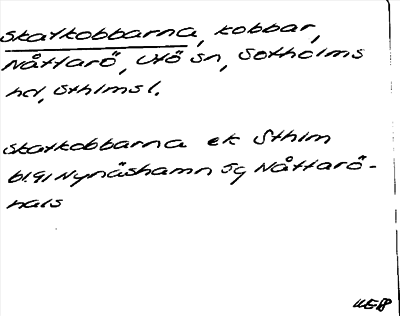 Skatkobbarna, kobbar,
Nåttarö, Utö sn, Sotholms
hd, Sthlms l.
Skatkobbarna ek Sthlm
bl. 91 Nynäshamn 5g Nåttarö-
hals